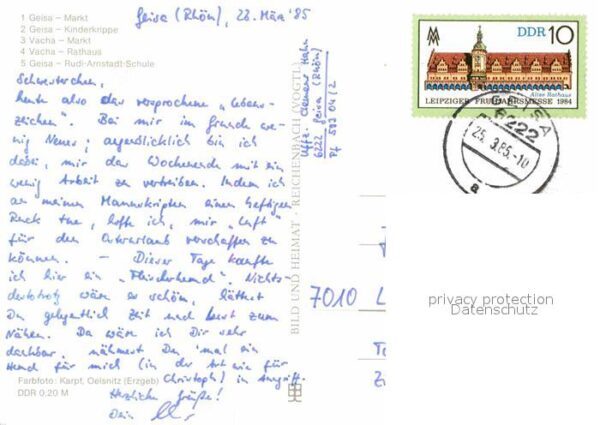 Geisa (Rhön), 23. März '85
1 Geisa – Markt
2 Geisa – Kinderkrippe
3 Vacha – Markt
4 Vacha – Rathaus
5 Geisa – Rudi-Arnstadt-Schule
Schwesterchen,
heute also das versprochene „Lebens-
zeichen". Bei mir im Grunde we-
nig Neues; augenblicklich bin ich
dabei, mir das Wochenende mit ein
wenig Arbeit zu vertreiben. Indem ich
an meinen Manuskripten einen heftigen
Ruck tue, hoffe ich, mir „Luft"
für den Osterurlaub verschaffen zu
können. – Dieser Tage kaufte
ich hier ein „Fleischerhemd". Nichts-
destotrotz wäre es schön, hättest
Du gelegentlich Zeit und Lust zum
Nähen. Da wäre ich Dir sehr
dankbar, nähmest Du 'mal ein
Hemd für mich (in der Art wie für
Christoph) in Angriff.
Herzliche Grüße!
Dein
Farbfoto: Karpf, Oelsnitz (Erzgeb)
DDR 0,20 M
BILD UND HEIMAT · REICHENBACH (VOGTL)
Uffz. Clemens Hahn
6222 Geisa (Rhön)
Pf 593 04/2
7010 L
DDR 10
Altes Rathaus
LEIPZIGER FRÜHJAHRSMESSE 1984
GEISA
6222
25.3.85.-10
a
privacy protection
Datenschutz